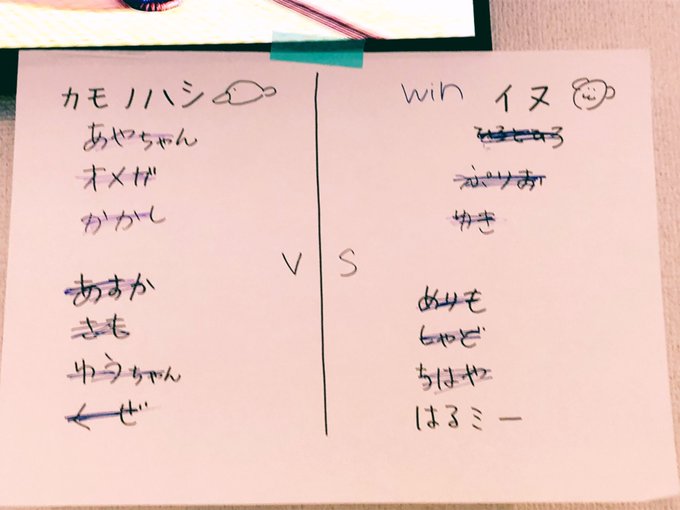 カモノハシ
あやちゃん
オメガ
かかし
あすか
さも
ゆうちゃん
くぜ
VS
win イヌ
ぷりお
ゆき
めりも
しゃど
ちはや
はるミー